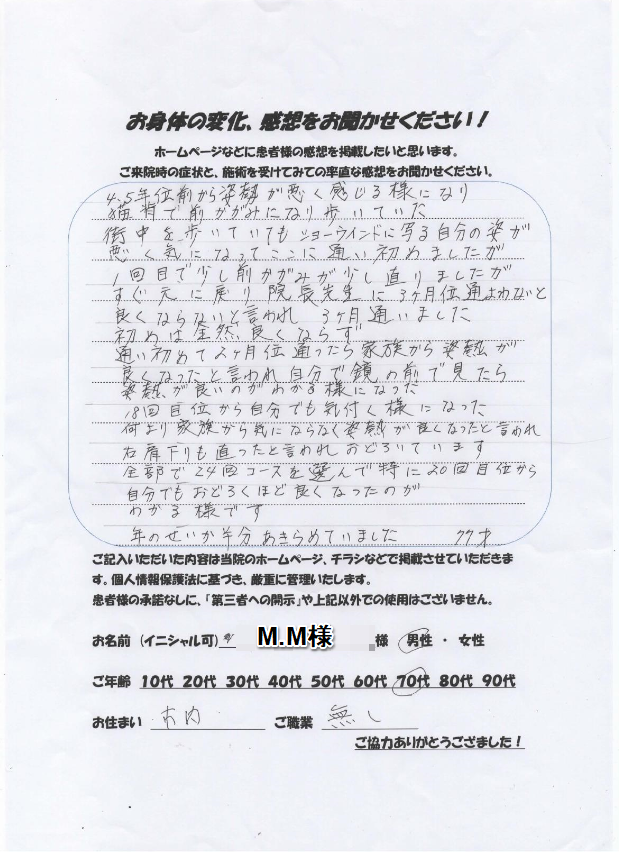 お身体の変化、感想をお聞かせください！
ホームページなどに患者様の感想を掲載したいと思います。
ご来院時の症状と、施術を受けてみての率直な感想をお聞かせください。
4.5年位前から姿勢が悪く感じる様になり
猫背で前かがみになり歩いていた
街中を歩いていてもショーウインドに写る自分の姿が
悪く気になってここに通い初めましたが
1回目で少し前かがみが少し直りましたが
すぐ元に戻り 院長先生に3ヶ月位通よわないと
良くならないと言われ 3ヶ月通いました
初めは全然良くならず
通い初めて2ヶ月位通ったら家族から姿勢が
良くなったと言われ自分で鏡の前で見たら
姿勢が良いのがわかる様になった
18回目位から自分でも気付く様になった
何より家族から気にならなく姿勢が良くなったと言われ
右肩下りも直ったと言われおどろいています
全部で24回コースを選んで特に20回目位から
自分でもおどろくほど良くなったのが
わかる様です
年のせいか半分あきらめていました 77才
ご記入いただいた内容は当院のホームページ、チラシなどで掲載させていただきま
す。個人情報保護法に基づき、厳重に管理いたします。
患者様の承諾なしに、「第三者への開示」や上記以外での使用はございません。
お名前（イニシャル可） M.M様 様 男性 ・ 女性
ご年齢 10代 20代 30代 40代 50代 60代 70代 80代 90代
お住まい 市内 ご職業 無し
ご協力ありがとうござました！